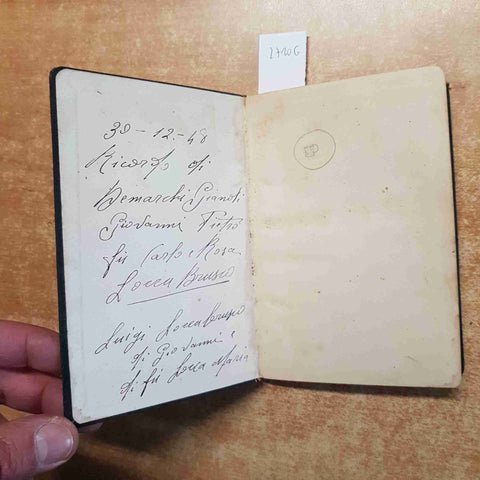 27206
30-12-48
Ricordo di
Demarchi Gianoti
Giovanni Pietro
fù Carlo e Rosa
Locca Brusio
Luigi Locca Brusio
di Giovanni e
di fù Locca Maria